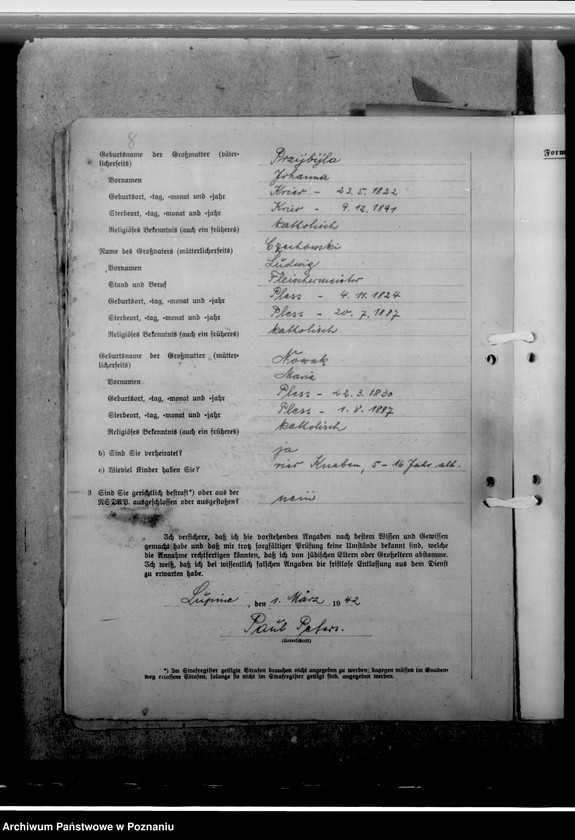 8
Form
Geburtsname der Großmutter (väter- Brzybyla
licherseits)
Vornamen Johanna
Geburtsort, -tag, -monat und -jahr Krier - 23. 5. 1822
Sterbeort, -tag, -monat und -jahr Krier - 9. 12. 1891
Religiöses Bekenntnis (auch ein früheres) katholisch
Name des Großvaters (mütterlicherseits) Czechowski
Vornamen Ludwig
Stand und Beruf Fleischermeister
Geburtsort, -tag, -monat und -jahr Pless - 4. 11. 1824
Sterbeort, -tag, -monat und -jahr Pless - 20. 7. 1887
Religiöses Bekenntnis (auch ein früheres) katholisch
Geburtsname der Großmutter (mütter- Nowak
licherseits)
Vornamen Maria
Geburtsort, -tag, -monat und -jahr Pless - 22. 3. 1830
Sterbeort, -tag, -monat und -jahr Pless - 1. 8. 1887
Religiöses Bekenntnis (auch ein früheres) katholisch
b) Sind Sie verheiratet? ja
c) Wieviel Kinder haben Sie? vier Knaben, 5 - 16 Jahr alt.
3 Sind Sie gerichtlich bestraft*) oder aus der
NSDAP. ausgeschlossen oder ausgestoßen? nein
Ich versichere, daß ich die vorstehenden Angaben nach bestem Wissen und Gewissen
gemacht habe und daß mir trotz sorgfältiger Prüfung keine Umstände bekannt sind, welche
die Annahme rechtfertigen könnten, daß ich von jüdischen Eltern oder Großeltern abstamme.
Ich weiß, daß ich bei wissentlich falschen Angaben die fristlose Entlassung aus dem Dienst
zu erwarten habe.
Lupine, den 1. März 1942
Paul Peters.
(Unterschrift)
*) Im Strafregister getilgte Strafen brauchen nicht angegeben zu werden; dagegen müssen im Gnaden-
weg erlassene Strafen, solange sie nicht im Strafregister getilgt sind, angegeben werden.
Archiwum Państwowe w Poznaniu